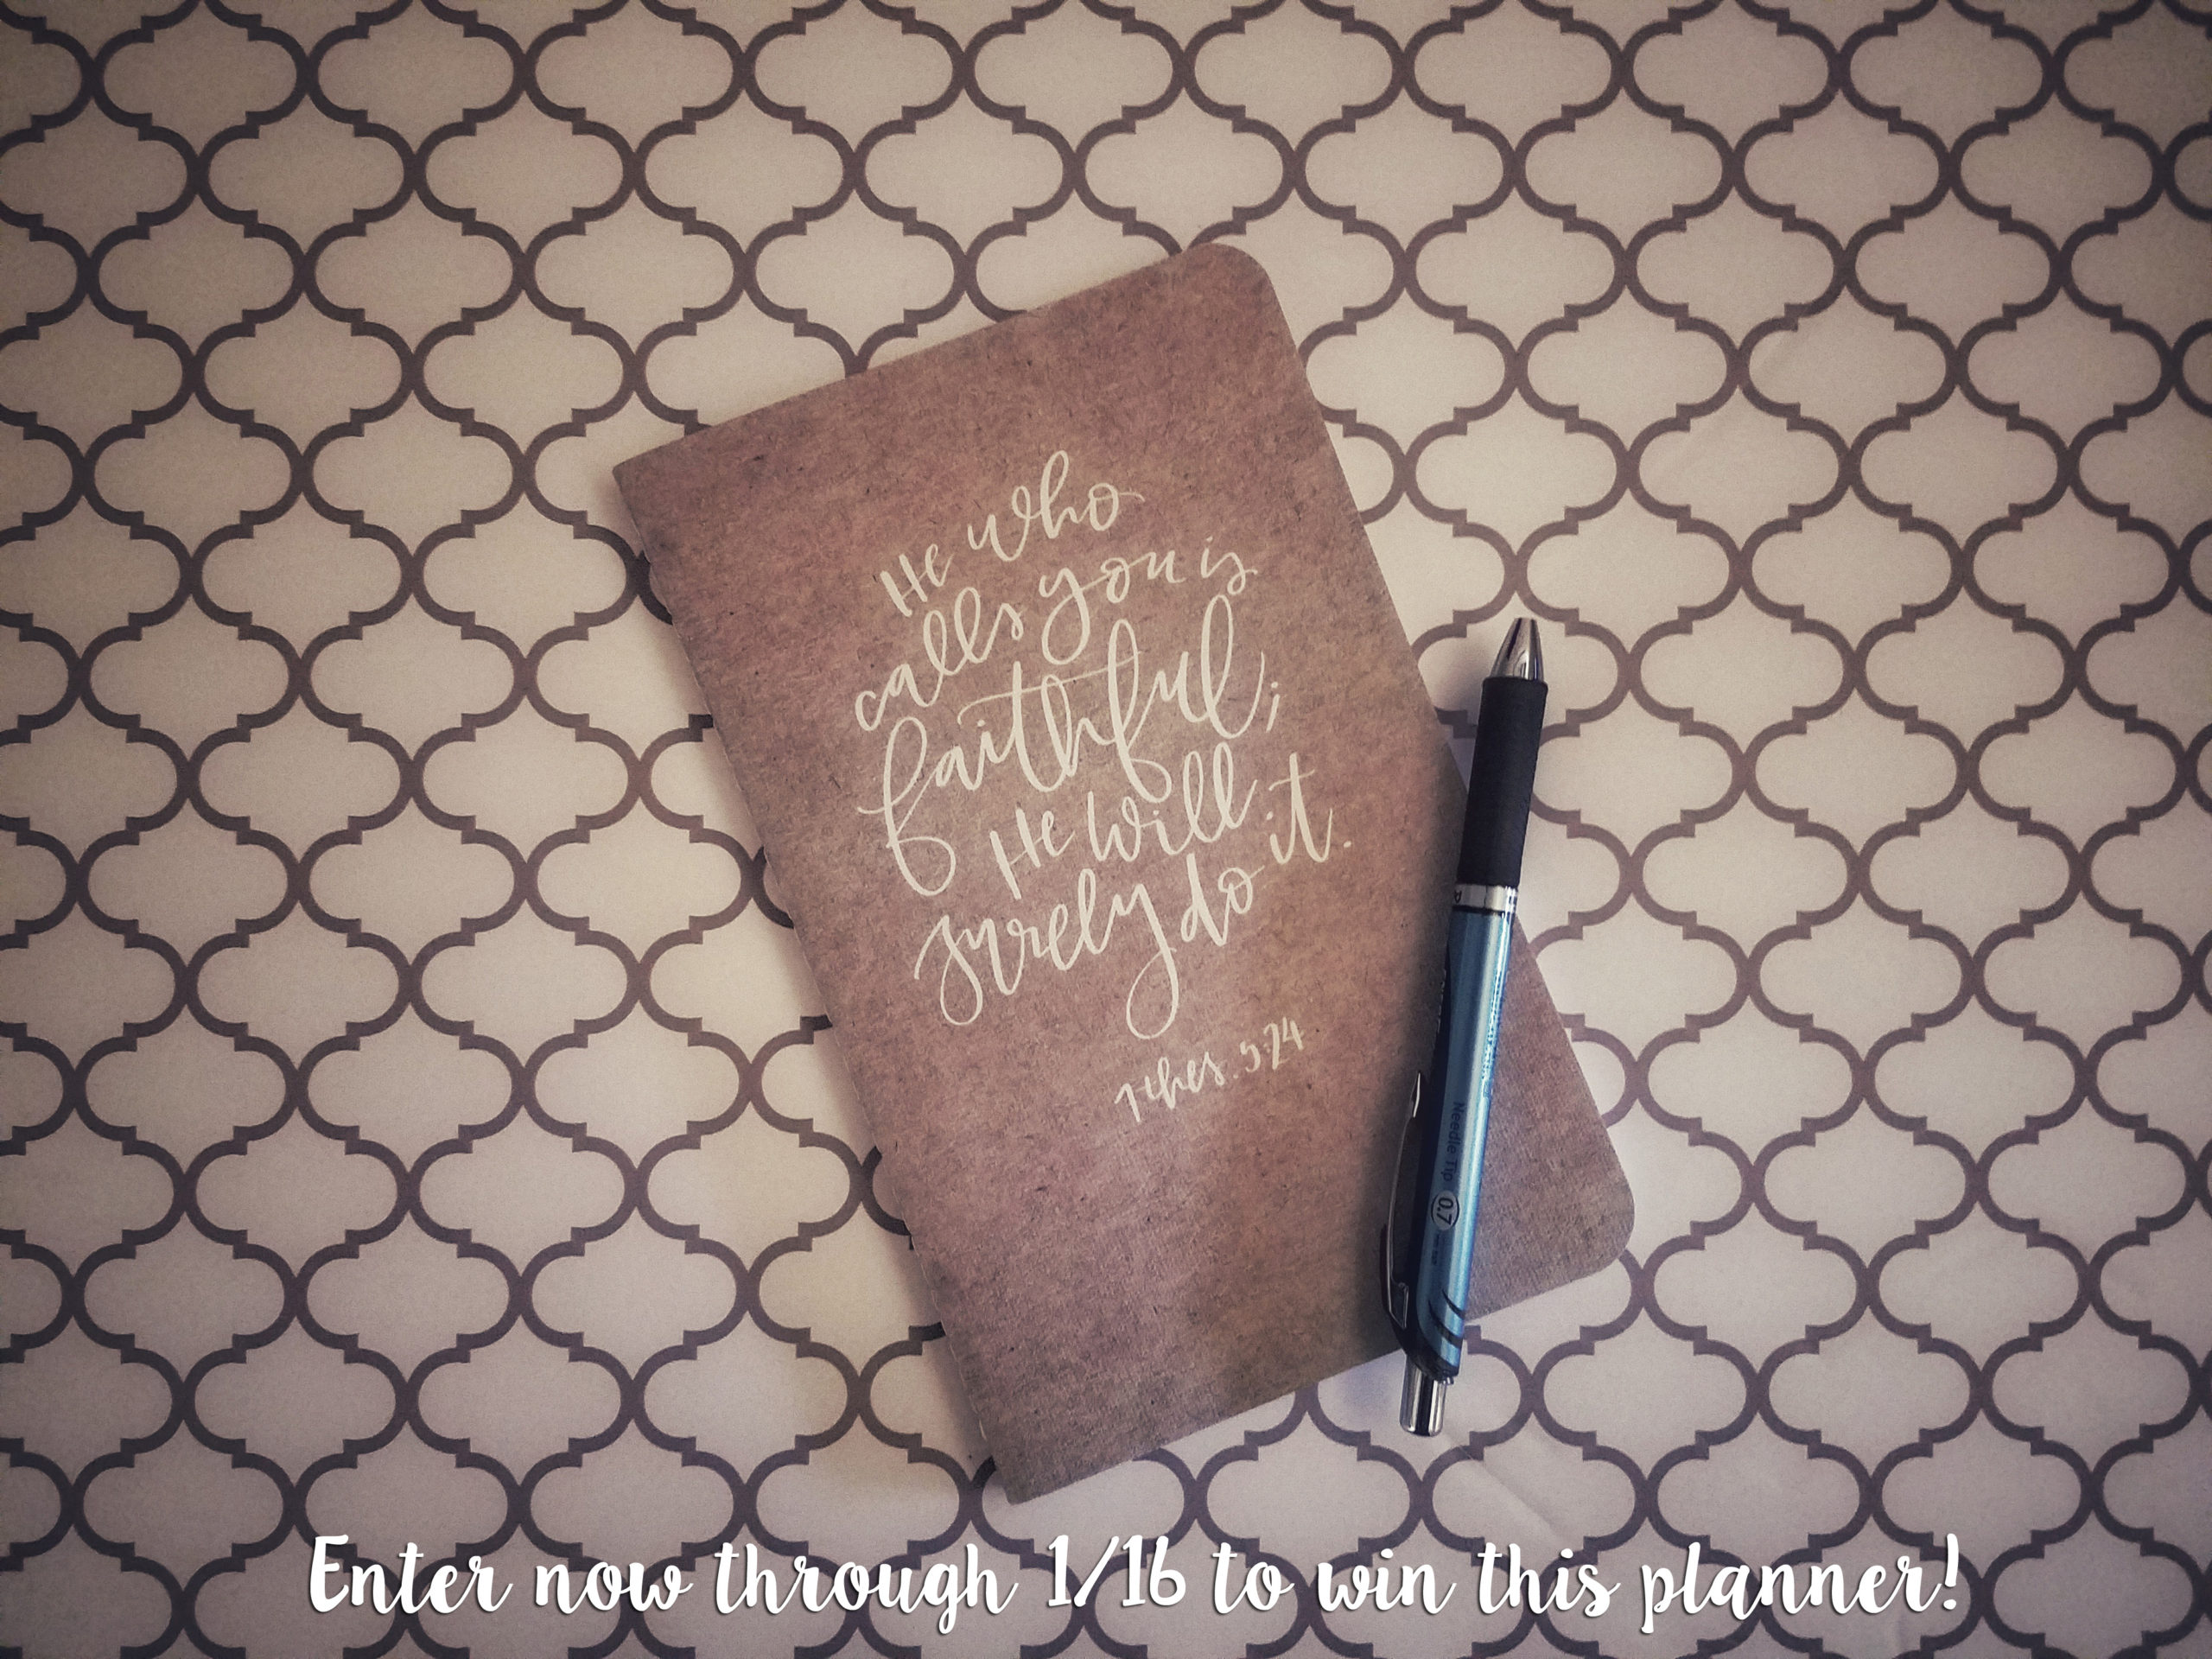 He who
calls you is
faithful;
He will
surely do it.
1 thes. 5:24
Needle Tip 0.7
Enter now through 1/16 to win this planner!